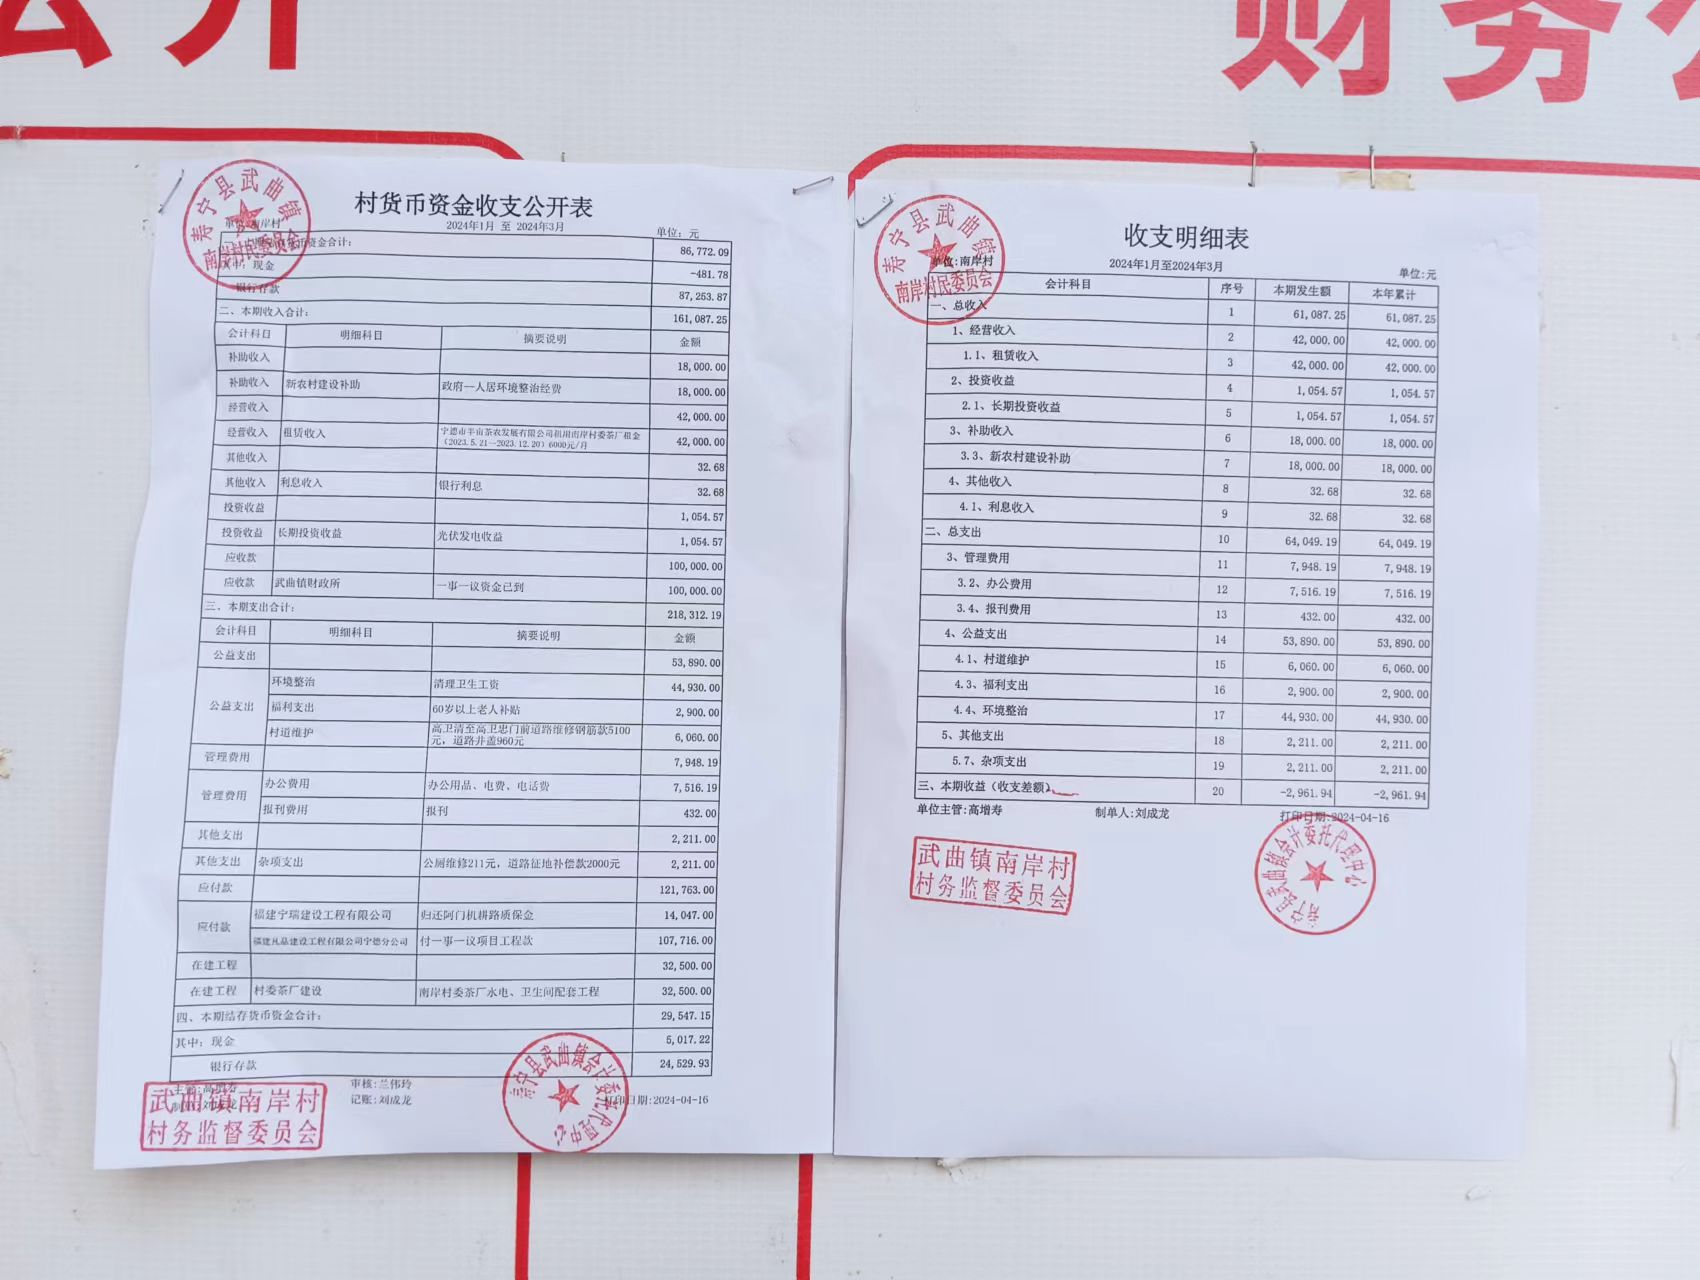 公开
财务公
寿宁县武曲镇
南岸村民委员会
村货币资金收支公开表
2024年1月 至 2024年3月
单位：南岸村 单位：元
货币资金合计： 86,772.09
其中：现金 -481.78
银行存款 87,253.87
二、本期收入合计： 161,087.25
会计科目 明细科目 摘要说明 金额
补助收入 18,000.00
补助收入 新农村建设补助 政府—人居环境整治经费 18,000.00
经营收入 42,000.00
经营收入 租赁收入 宁德市半亩茶农发展有限公司租用南岸村委茶厂租金
（2023.5.21—2023.12.20）6000元/月 42,000.00
其他收入 32.68
其他收入 利息收入 银行利息 32.68
投资收益 1,054.57
投资收益 长期投资收益 光伏发电收益 1,054.57
应收款 100,000.00
应收款 武曲镇财政所 一事一议资金已到 100,000.00
三、本期支出合计： 218,312.19
会计科目 明细科目 摘要说明 金额
公益支出 53,890.00
公益支出 环境整治 清理卫生工资 44,930.00
福利支出 60岁以上老人补贴 2,900.00
村道维护 高卫清至高卫忠门前道路维修钢筋款5100
元，道路井盖960元 6,060.00
管理费用 7,948.19
管理费用 办公费用 办公用品、电费、电话费 7,516.19
报刊费用 报刊 432.00
其他支出 2,211.00
其他支出 杂项支出 公厕维修211元，道路征地补偿款2000元 2,211.00
应付款 121,763.00
应付款 福建宁瑞建设工程有限公司 归还阿门机耕路质保金 14,047.00
福建凡晶建设工程有限公司宁德分公司 付一事一议项目工程款 107,716.00
在建工程 32,500.00
在建工程 村委茶厂建设 南岸村委茶厂水电、卫生间配套工程 32,500.00
四、本期结存货币资金合计： 29,547.15
其中：现金 5,017.22
银行存款 24,529.93
主管：高增寿 审核：兰伟玲
制单：刘成龙 记账：刘成龙 打印日期：2024-04-16
武曲镇南岸村
村务监督委员会
寿宁县武曲镇会计委托代理中心
寿宁县武曲镇
南岸村民委员会
收支明细表
2024年1月至2024年3月
单位：南岸村 单位：元
会计科目 序号 本期发生额 本年累计
一、总收入 1 61,087.25 61,087.25
1、经营收入 2 42,000.00 42,000.00
1.1、租赁收入 3 42,000.00 42,000.00
2、投资收益 4 1,054.57 1,054.57
2.1、长期投资收益 5 1,054.57 1,054.57
3、补助收入 6 18,000.00 18,000.00
3.3、新农村建设补助 7 18,000.00 18,000.00
4、其他收入 8 32.68 32.68
4.1、利息收入 9 32.68 32.68
二、总支出 10 64,049.19 64,049.19
3、管理费用 11 7,948.19 7,948.19
3.2、办公费用 12 7,516.19 7,516.19
3.4、报刊费用 13 432.00 432.00
4、公益支出 14 53,890.00 53,890.00
4.1、村道维护 15 6,060.00 6,060.00
4.3、福利支出 16 2,900.00 2,900.00
4.4、环境整治 17 44,930.00 44,930.00
5、其他支出 18 2,211.00 2,211.00
5.7、杂项支出 19 2,211.00 2,211.00
三、本期收益（收支差额） 20 -2,961.94 -2,961.94
单位主管：高增寿 制单人：刘成龙 打印日期：2024-04-16
武曲镇南岸村
村务监督委员会
寿宁县武曲镇会计委托代理中心